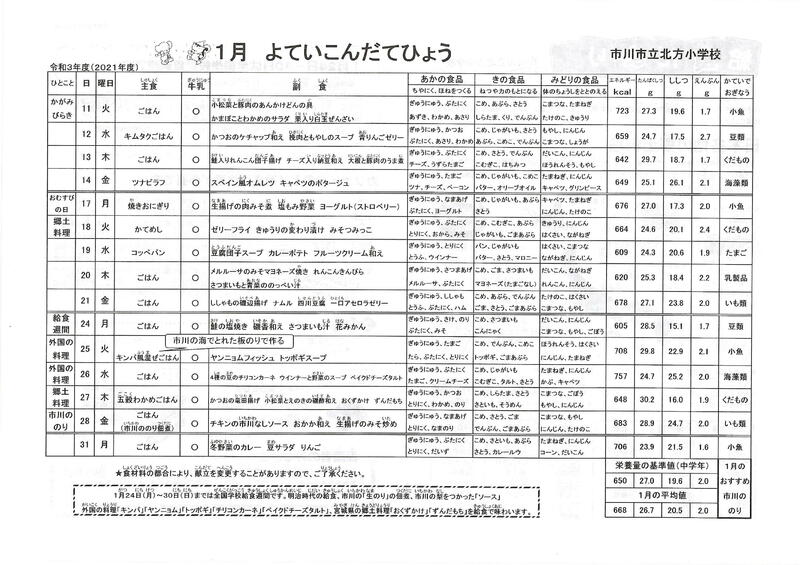 1月 よていこんだてひょう
市川市立北方小学校
令和3年度(2021年度)
ひとこと 日 曜日 主食 牛乳 副食 あかの食品 きの食品 みどりの食品 エネルギー たんぱくしつ ししつ えんぶん かていで
ちやにく、ほねをつくる ねつや力のもとになる 体のちょうしをととのえる kcal g g g おぎなう
かがみびらき 11 火 ごはん ○ 小松菜と豚肉のあんかけどんの具 ぎゅうにゅう、ぶたにく こめ、あぶら、さとう こまつな、たまねぎ 723 27.3 19.6 1.7 小魚
かまぼことわかめのサラダ 栗入り白玉ぜんざい あずき、わかめ、あさり しらたま、くり、でんぷん たけのこ、きゅうり
12 水 キムタクごはん ○ かつおのケチャップ和え 挽肉ともやしのスープ 青りんごゼリー ぎゅうにゅう、かつお こめ、じゃがいも、さとう もやし、にんじん 659 24.7 17.5 2.7 豆類
ぶたにく、あさり、わかめ あぶら、こめこ、でんぷん こまつな、しょうが
13 木 ごはん ○ 鮭入りれんこん団子揚げ チーズ入り納豆和え 大根と豚肉のうま煮 ぎゅうにゅう、ぶたにく こめ、さとう、でんぷん だいこん、にんじん 642 29.7 18.7 1.7 くだもの
チーズ、うずらたまご こむぎこ、はちみつ ほうれんそう、もやし
14 金 ツナピラフ ○ スペイン風オムレツ キャベツのポタージュ ぎゅうにゅう、たまご こめ、じゃがいも、こめこ たまねぎ、にんじん 649 25.1 26.1 2.1 海藻類
ツナ、チーズ、ベーコン バター、オリーブオイル キャベツ、グリンピース
おむすびの日 17 月 焼きおにぎり ○ 生揚げの肉みそ煮 塩もみ野菜 ヨーグルト(ストロベリー) ぎゅうにゅう、なまあげ こめ、じゃがいも、あぶら キャベツ、たまねぎ 676 27.0 17.3 2.0 小魚
ぶたにく、ヨーグルト さとう にんじん、たけのこ
郷土料理 18 火 かてめし ○ ゼリーフライ きゅうりの変わり漬け みそつみっこ ぎゅうにゅう、ぶたにく こめ、こむぎこ、あぶら きゅうり、にんじん 664 24.6 20.1 2.4 くだもの
とりにく、おから、みそ じゃがいも、ごまあぶら はくさい、ながねぎ
19 水 コッペパン ○ 豆腐団子スープ カレーポテト フルーツクリーム和え ぎゅうにゅう、とりにく パン、じゃがいも はくさい、こまつな 609 24.3 20.6 1.9 たまご
とうふ、ウインナー バター、さとう、マロニー もやし、にんじん
20 木 ごはん ○ メルルーサのみそマヨネーズ焼き れんこんきんぴら ぎゅうにゅう、さつまあげ こめ、ごま、さつまいも だいこん、ながねぎ 620 25.3 18.4 2.2 乳製品
さつまいもと青菜ののっぺい汁 メルルーサ、ぶたにく マヨネーズ(たまごなし) れんこん、にんじん
21 金 ごはん ○ ししゃもの磯辺揚げ ナムル 四川豆腐 一口アセロラゼリー ぎゅうにゅう、ししゃも こめ、あぶら、でんぷん たけのこ、はくさい 678 27.1 23.8 2.0 いも類
とうふ、ぶたにく、ハム ごま、ごまあぶら、さとう もやし、こまつな
給食週間 24 月 ごはん ○ 鮭の塩焼き 磯香和え さつまいも汁 花みかん ぎゅうにゅう、さけ、のり こめ、さつまいも こまつな、にんじん 605 28.5 15.1 1.7 豆類
ぶたにく、みそ こんにゃく もやし、こまつな、ごぼう
市川の海でとれた板のりで作る
外国の料理 25 火 キンパ風混ぜごはん ○ ヤンニョムフィッシュ トッポギスープ ぎゅうにゅう、たまご こめ、でんぷん、ごま ほうれんそう、はくさい 708 29.8 22.9 2.1 小魚
たら、ぶたにく、とりにく トッポギ、ごまあぶら もやし、にんじん
外国の料理 26 水 ごはん ○ 4種の豆のチリコンカーネ ウインナーと野菜のスープ ベイクドチーズタルト ぎゅうにゅう、ぶたにく こめ、じゃがいも たまねぎ、にんじん 757 24.7 25.2 2.0 海藻類
たまご、クリームチーズ こむぎこ、タルト、さとう かぶ、キャベツ
郷土料理 27 木 五穀わかめごはん ○ かつおの竜田揚げ 小松菜とえのきの磯酢和え おくずかけ ずんだもち ぎゅうにゅう、かつお こめ、しらたま、さとう こまつな、にんじん 648 30.2 16.0 1.9 くだもの
とりにく、わかめ、のり さといも、そうめん もやし、えだまめ
市川ののり 28 金 ごはん ○ チキンの市川なしソース おかか和え 生揚げのみそ炒め ぎゅうにゅう、なまあげ こめ、さとう、ごま こまつな、もやし 683 28.9 24.7 2.0 いも類
(市川ののり佃煮) とりにく、なまのり でんぷん、ごまあぶら にんじん、なし
31 月 ごはん ○ 冬野菜のカレー 豆サラダ りんご ぎゅうにゅう、ぶたにく こめ、さといも、あぶら たまねぎ、にんじん 706 23.9 21.5 1.6 小魚
とりにく、だいず さとう、カレールウ コーン、だいこん
★食材料の都合により、献立を変更することがありますので、ご了承ください。
栄養量の基準値(中学年) 1月の
650 27.0 19.6 2.0 おすすめ
1月の平均値 市川の
668 26.7 20.5 2.0 のり
1月24日(月)~30日(日)までは全国学校給食週間です。明治時代の給食、市川の「生のり」の佃煮、市川の梨をつかった「ソース」
外国の料理「キンパ」「ヤンニョム」「トッポギ」「チリコンカーネ」「ベイクドチーズタルト」、宮城県の郷土料理「おくずかけ」「ずんだもち」を給食で味わいます。